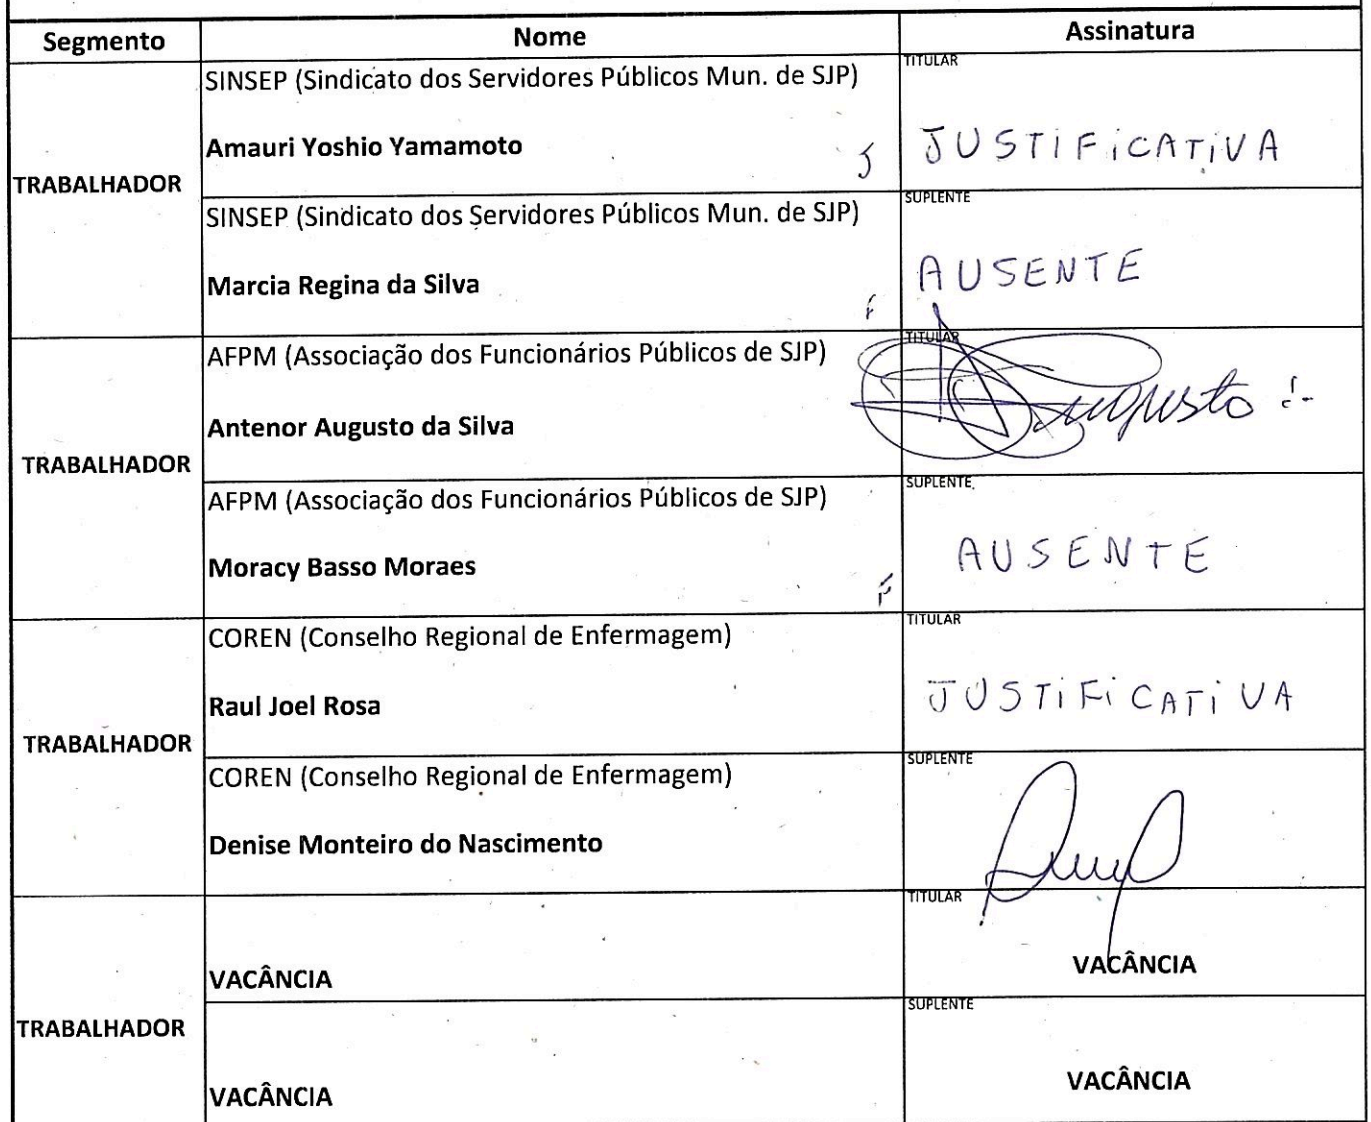 Segmento Nome Assinatura
TRABALHADOR
SINSEP (Sindicato dos Servidores Públicos Mun. de SJP)
Amauri Yoshio Yamamoto J
TITULAR
JUSTIFiCATiVA
SINSEP (Sindicato dos Servidores Públicos Mun. de SJP)
Marcia Regina da Silva F
SUPLENTE
AUSENTE
TRABALHADOR
AFPM (Associação dos Funcionários Públicos de SJP)
Antenor Augusto da Silva
TITULAR
Augusto
AFPM (Associação dos Funcionários Públicos de SJP)
Moracy Basso Moraes F
SUPLENTE
AUSENTE
TRABALHADOR
COREN (Conselho Regional de Enfermagem)
Raul Joel Rosa
TITULAR
JUSTiFiCATiVA
COREN (Conselho Regional de Enfermagem)
Denise Monteiro do Nascimento
SUPLENTE
TRABALHADOR
VACÂNCIA
TITULAR
VACÂNCIA
VACÂNCIA
SUPLENTE
VACÂNCIA